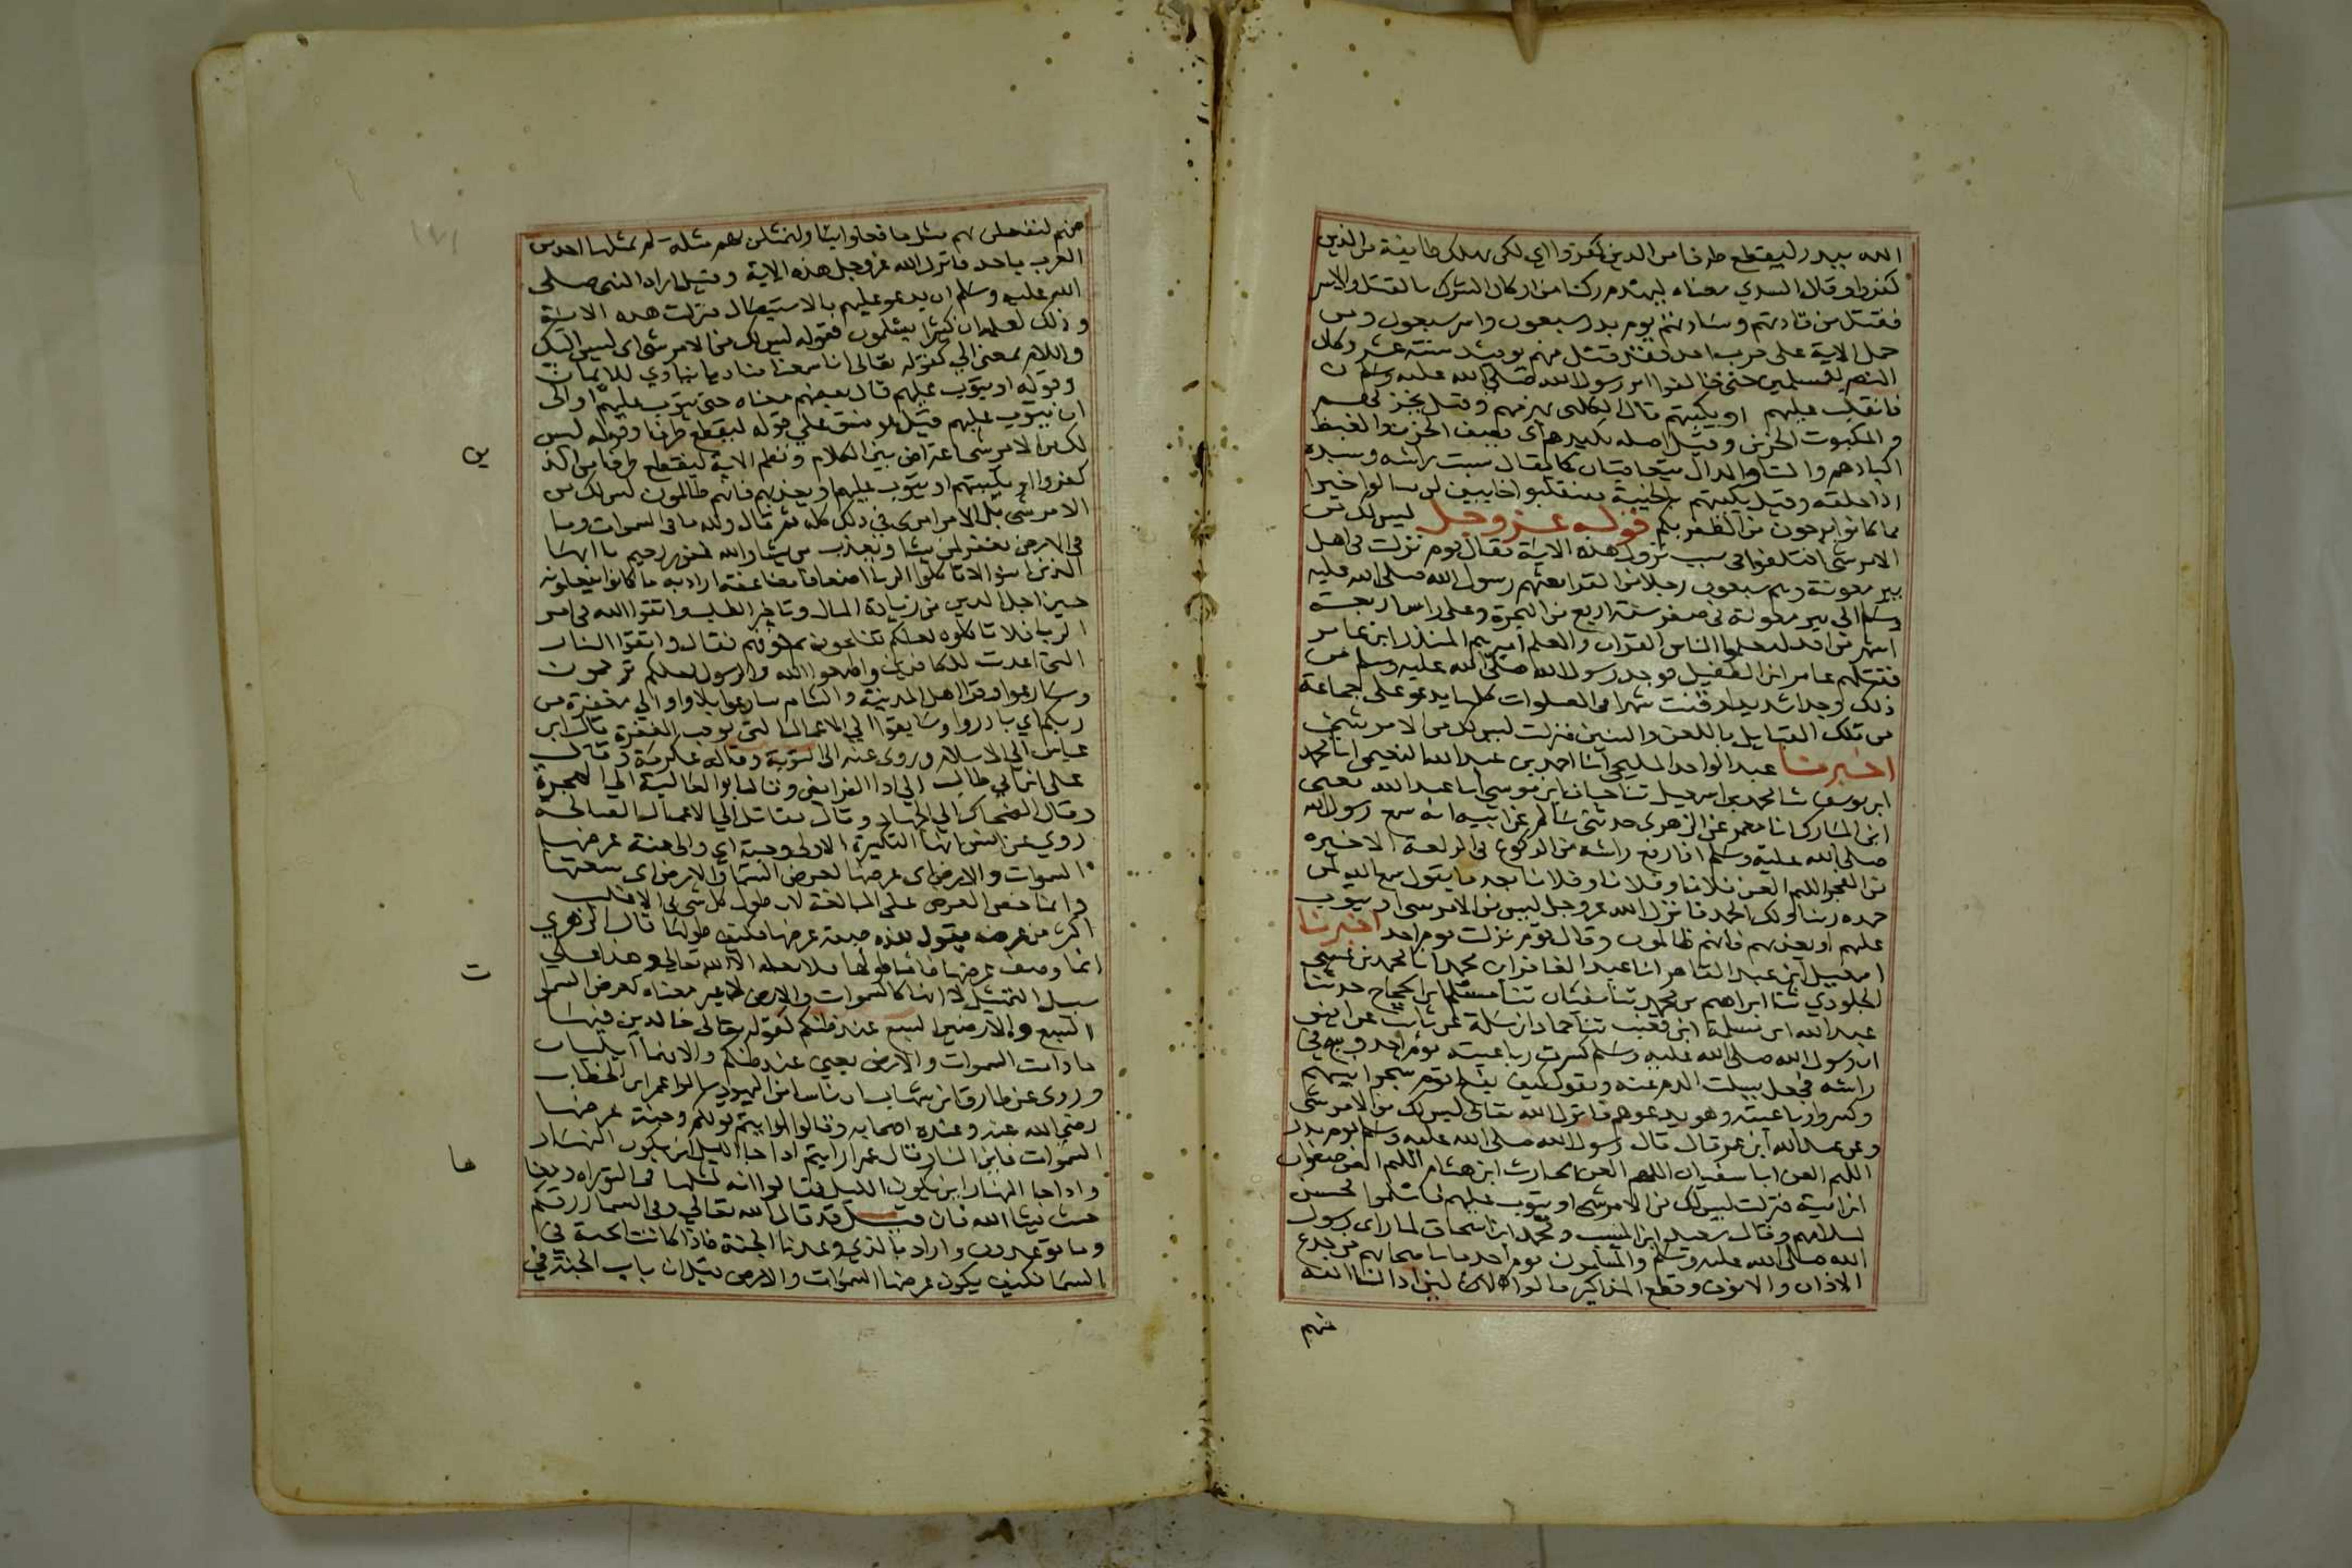 الله ببدر ليقطع طرفا من الذين كفروا اي لكي يهلك طايفة من الذين
كفروا وقال السدي معناه ليهدم ركنا من اركان الشرك بالقتل والاسر
فقتل من قادتهم وسادتهم يوم بدر سبعون واسر سبعون ومن
حمل الاية على حرب احد فقد قتل منهم يوميذ ستة عشر وكان
النصر للمسلمين حتى خالفوا امر رسول الله صلى الله عليه وسلم
فانقلب عليهم او يكبتهم قال الكلبي يهزمهم وقيل
والمكبوت الحزين وقيل اصله يكبدهم اي يصيب الحزن والغيظ
اكبادهم والتا والدال يتعاقبان كما يقال سبت راسه وسبده
اذا حلقه وقيل يكبتهم بالخيبة فينقلبوا خايبين لن ينالوا خيرا
مما كانوا يرجون من الظفر بكم قوله عز وجل ليس لك من
الامر شي اختلفوا في سبب نزول هذه الاية فقال قوم نزلت في اهل
بير معونة وهم سبعون رجلا من القرا بعثهم رسول الله صلى الله عليه
وسلم الى بير معونة في صفر سنة اربع من الهجرة وعلى راس اربعة
اشهر من احد ليعلموا الناس القران والعلم اميرهم المنذر ابن عامر
فقتلهم عامر ابن الطفيل فوجد رسول الله صلى الله عليه وسلم من
ذلك وجدا شديدا وقنت شهرا في الصلوات كلها يدعو على جماعة
من تلك القبايل باللعن والسنين فنزلت ليس لك من الامر شي
اخبرنا عبد الواحد المليحي انا احمد بن عبد الله النعيمي انا محمد
ابن يوسف ثنا محمد بن اسمعيل ثنا حبان ابن موسى انا عبد الله يعني
ابن المبارك انا معمر عن الزهري حدثني سالم عن ابيه انه سمع رسول الله
صلى الله عليه وسلم اذا رفع راسه من الركوع في الركعة الاخيره
من الفجر اللهم العن فلانا وفلانا وفلانا بعد ما يقول سمع الله لمن
حمده ربنا ولك الحمد فانزل الله عز وجل ليس من الامر شي او يتوب
عليهم او يعذبهم فانهم ظالمون وقال قوم نزلت يوم احد اخبرنا
اسمعيل ابن عبد القاهر انا عبد الغافر ابن محمد انا محمد بن عيسى
الجلودي ثنا ابراهيم بن محمد بن سفيان ثنا مسلم ابن الحجاج حدثنا
عبد الله ابن مسلمة ابن قعنب ثنا حماد ابن سلمة عن ثابت عن انس
ان رسول الله صلى الله عليه وسلم كسرت رباعيته يوم احد وشج في
راسه فجعل يسلت الدم عنه ويقول كيف يفلح قوم شجوا نبيهم
وكسروا رباعيته وهو يدعوهم فانزل الله تعالى ليس لك من الامر شي
وعن عبد الله ابن عمر قال قال رسول الله صلى الله عليه وسلم يوم بدر
اللهم العن ابا سفيان اللهم العن الحارث ابن هشام اللهم العن صفوان
ابن امية فنزلت ليس لك من الامر شي او يتوب عليهم فاسلموا فحسن
اسلامهم وقال سعيد ابن المسيب ومحمد ابن اسحاق لما راى رسول
الله صلى الله عليه وسلم والمسلمون يوم احد ما باصحابهم من جدع
الاذان والانوف وقطع المذاكير قالوا لين ادالنا الله
منهم
منهم لنفعلن بهم مثل ما فعلوا بنا ولنمثلن بهم مثلة لم يمثلها احد من
العرب باحد فانزل الله عز وجل هذه الاية وقيل اراد النبي صلى
الله عليه وسلم ان يدعو عليهم بالاستيصال فنزلت هذه الاية
وذلك لعلمه ان كثيرا يسلمون فقوله ليس لك من الامر شي اي ليس اليك
واللام بمعنى الي كقوله تعالى اننا سمعنا مناديا ينادي للايمان
وقوله او يتوب عليهم قال بعضهم معناه حتى يتوب عليهم او الى
ان يتوب عليهم وقيل هو نسق على قوله ليقطع طرفا وقوله ليس
لك من الامر شي اعتراض بين الكلام ونظم الاية ليقطع طرفا من الذ
ين
كفروا او يكبتهم او يتوب عليهم او يعذبهم فانهم ظالمون ليس لك من
الامر شي بل الامر امري في ذلك كله ثم قال ولله ما في السموات وما
في الارض يغفر لمن يشا ويعذب من يشا والله غفور رحيم يا ايها
الذين امنوا لا تاكلوا الربا اضعافا مضاعفة اراد به ما كانوا يفعلونه
حين اجل الدين من زيادة المال وتاخير الطلب واتقوا الله في امر
الربا فلا تاكلوه لعلكم تفلحون ثم خوفهم فقال واتقوا النار
التي اعدت للكافرين واطيعوا الله والرسول لعلكم ترحمون
وسارعوا وقرا اهل المدينة والشام سارعوا بلا واو الي مغفرة من
ربكم اي بادروا وسابقوا الي الاعمال التي توجب المغفرة قال ابن
عباس الي الاسلام وروي عنه الى التوبة وقاله عكرمة وقال
علي ابن ابي طالب الي ادا الفرايض وقال ابو العالية الي الهجرة
وقال الضحاك الي الجهاد وقال مقاتل الي الاعمال الصالحة
روي عن انس انها التكبيرة الاولى وجنة اي والى جنة عرضها
السموات والارض اي عرضها كعرض السما والارض اي سعتها
وانما خص العرض على المبالغة لان طول كل شي في الاغلب
اكثر من عرضه يقول هذه صفة عرضها فكيف طولها قال الزهري
انما وصف عرضها فاما طولها فلا يعلمه الا الله تعالى وهذا على
ت
سبيل التمثيل لا انها كالسموات والارض لا غير معناه كعرض السموا
السبع والارضين السبع عند ظنكم كقوله تعالى خالدين فيها
ما دامت السموات والارض يعني عند ظنكم والا فهما زايلتان
وروى عن طارق ابن شهاب ان ناسا من اليهود سالوا عمر ابن الخطاب
رضي الله عنه وعنده اصحابه وقالوا ارايتم قولكم وجنة عرضها
السموات فاين النار فقال عمر ارايتم اذا جا الليل اين يكون النهار
ها
واذا جا النهار اين يكون الليل فقالوا انه لمثلها في التوراه ومعنا
حيث يشا الله فان قيل قد قال الله تعالي وفي السما رزقكم
وما توعدون واراد بالذي وعدنا الجنة فاذا كانت الجنة في
السما فكيف يكون عرضها السموات والارض قيل ان باب الجنة في